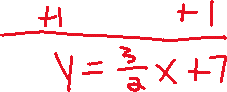 +1 +1
y = 3/2 x + 7